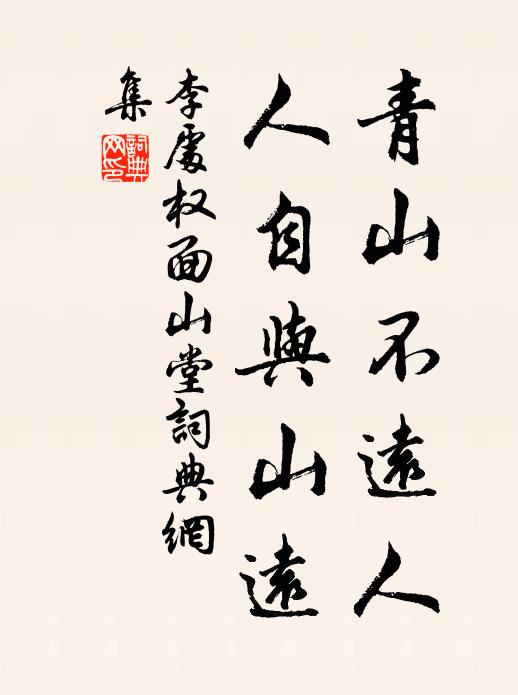 青山不遠人
人自與山遠
李處权面山堂詞典網
集
詞典
网印